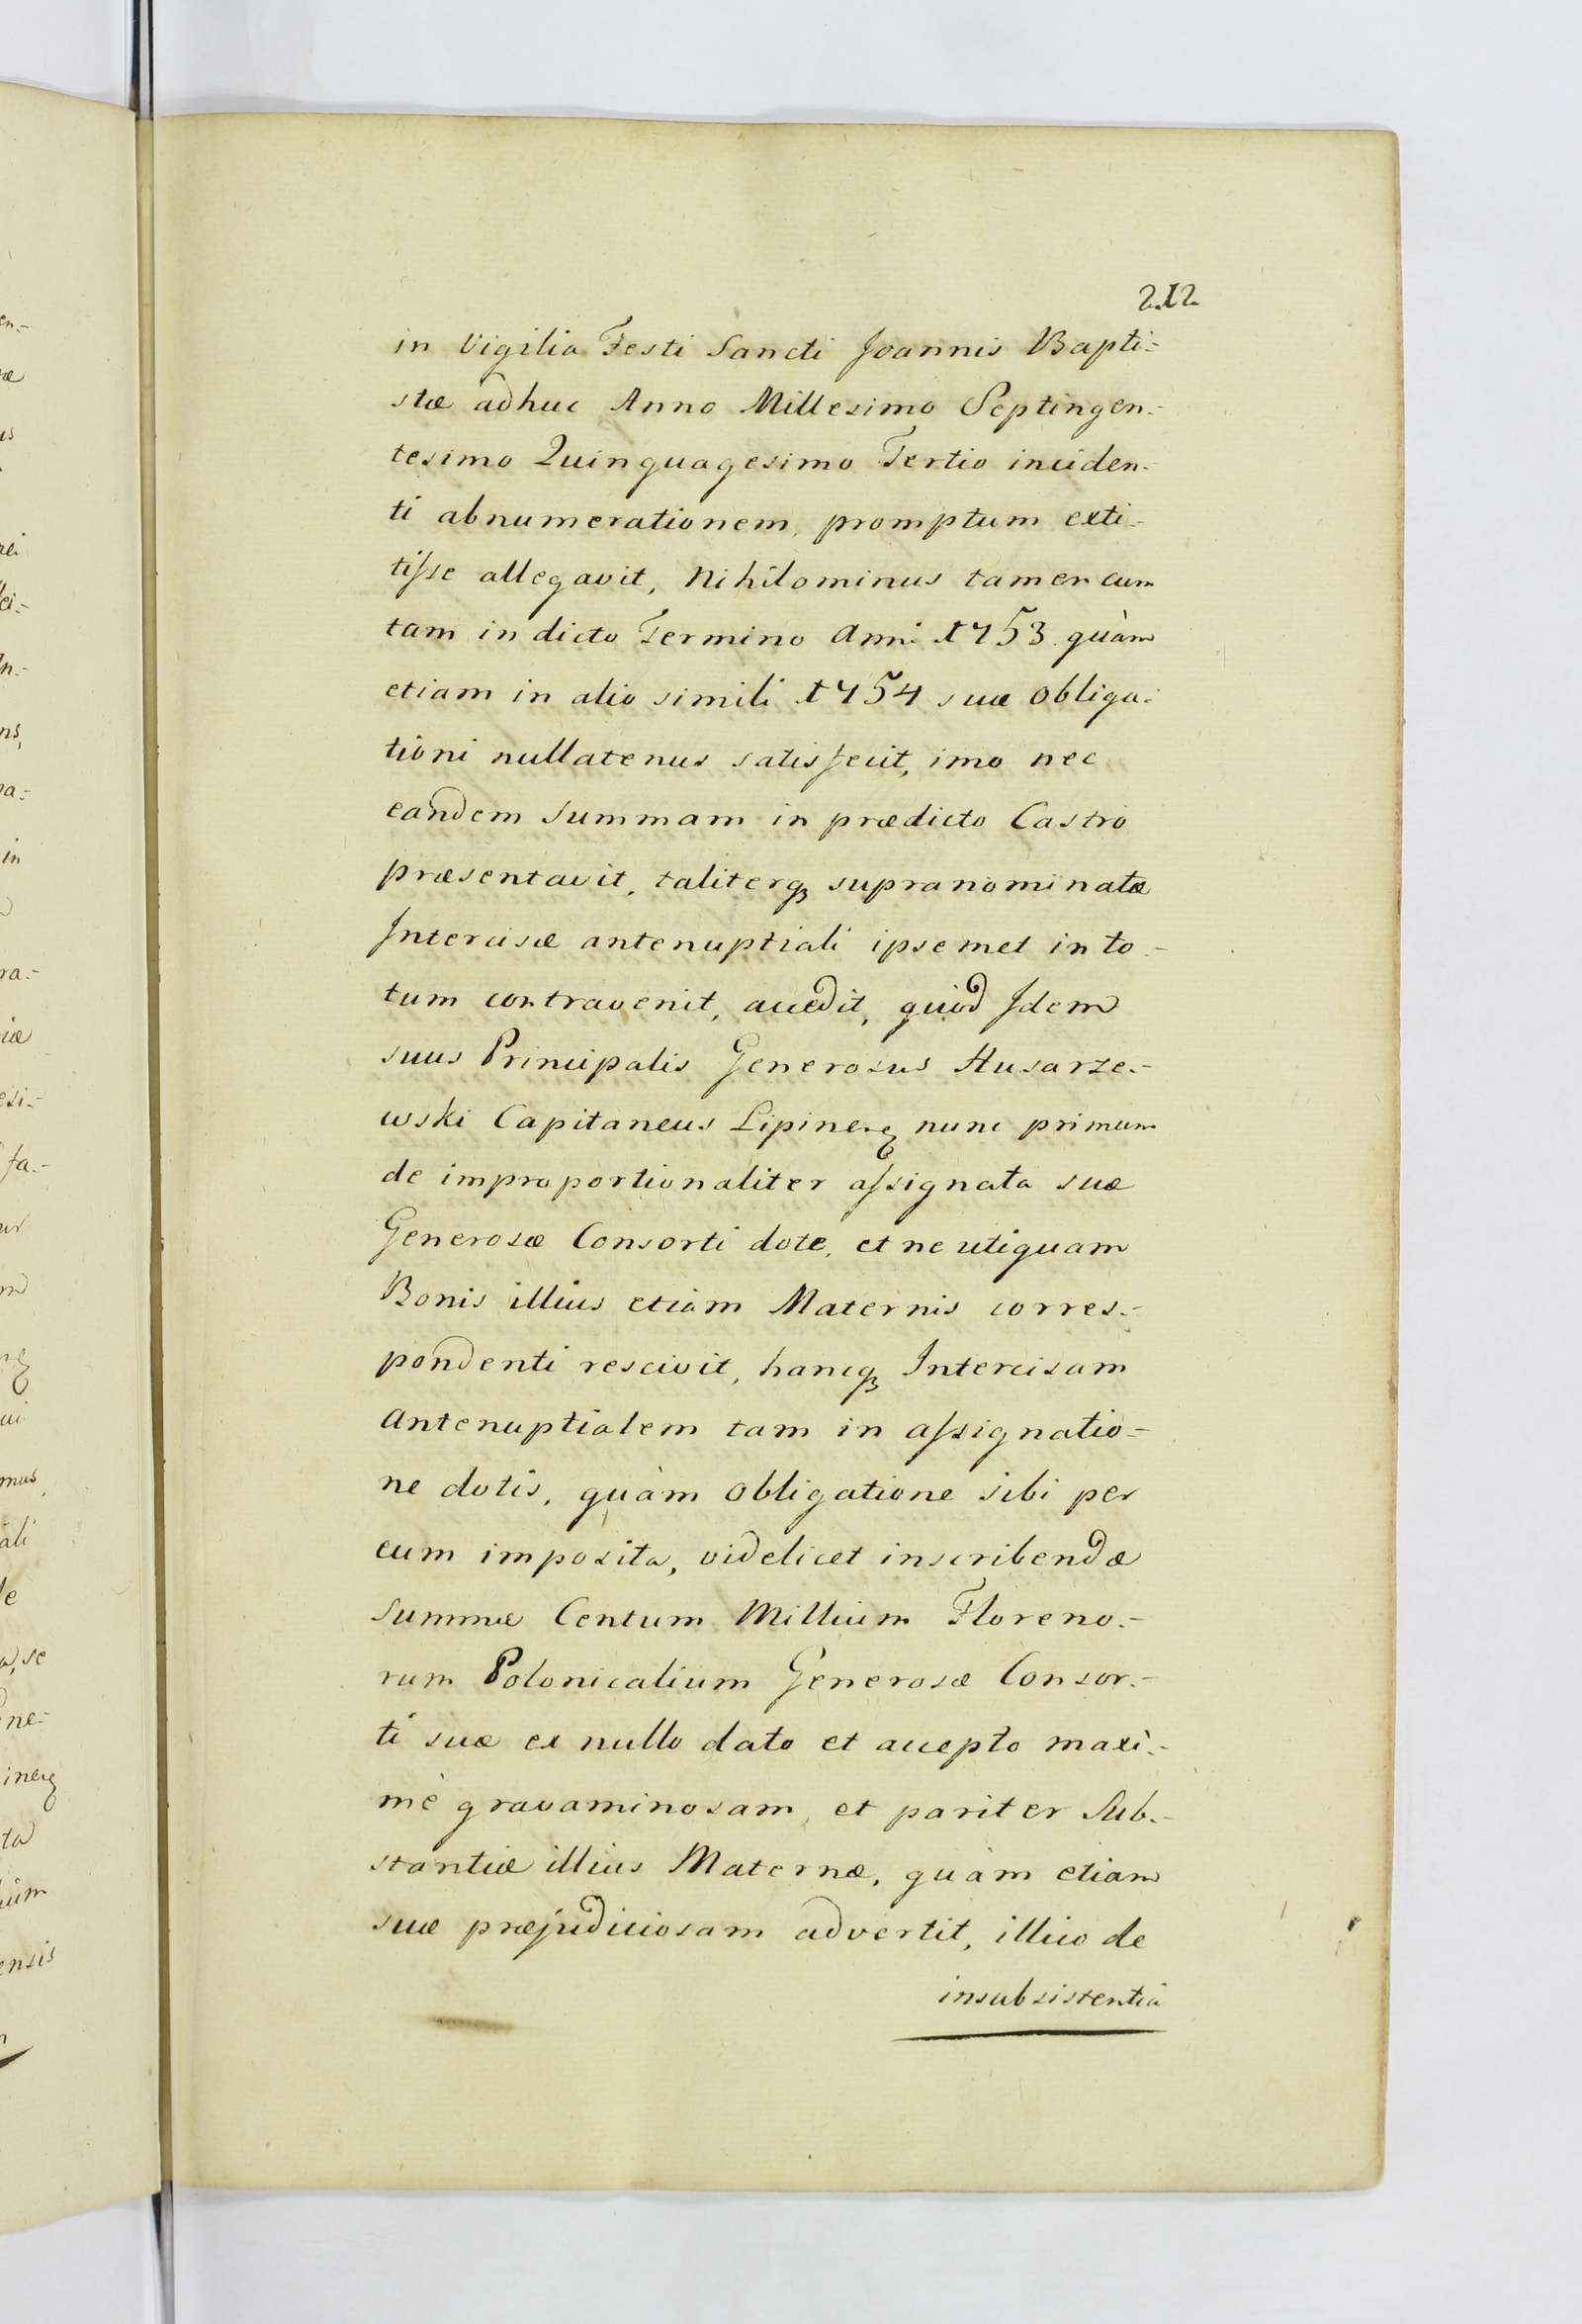 212
in Vigilia Festi Sancti Joannis Bapti=
stæ adhuc Anno Millesimo Septingen=
tesimo Quinquagesimo Tertio inciden=
ti abnumerationem, promptum exti=
tisse allegavit, Nihilominus tamen cum
tam in dicto Termino Anni 1753 quàm
etiam in alio simili 1754 suæ obliga=
tioni nullatenus satisfecit, imo nec
eandem Summam in prædicto Castro
præsentavit, taliterq3 supranominatæ
Intercisæ antenuptiali ipsemet in to=
tum contravenit, accedit, quòd Idem
suus Principalis Generosus Husarze=
wski Capitaneus Lipineñ nunc primum
de improportionaliter assignata suæ
Generosæ Consorti dote, et ne utiquam
Bonis illius etiam Maternis corres=
pondenti rescivit, hancq3 Intercisam
antenuptialem tam in assignatio=
ne dotis, quàm obligatione sibi per
eum imposita, videlicet inscribendæ
Summæ Centum Millium Floreno=
rum Polonicalium Generosæ Consor=
ti suæ ex nullo dato et accepto maxi=
mè gravaminosam, et pariter Sub=
stantiæ illius Maternæ, quàm etiam
suæ præjudiciosam advertit, illico de
insubsistentia